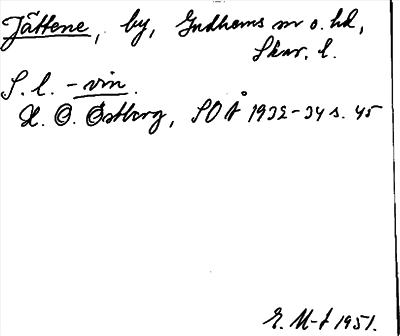 Jättene, by, Gudhems sn o. hd,
Skar. l.
S. l. -vin.
H. O. Östberg, SOÅ 1932-34 s. 45
E. M-t 1951.